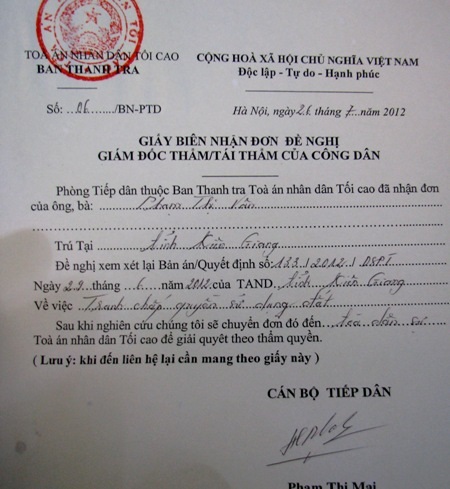 TOÀ ÁN NHÂN DÂN TỐI CAO
BAN THANH TRA
CỘNG HOÀ XÃ HỘI CHỦ NGHĨA VIỆT NAM
Độc lập - Tự do - Hạnh phúc
Số: 06 /BN-PTD
Hà Nội, ngày 26 tháng 7 năm 2012
GIẤY BIÊN NHẬN ĐƠN ĐỀ NGHỊ
GIÁM ĐỐC THẨM/TÁI THẨM CỦA CÔNG DÂN
Phòng Tiếp dân thuộc Ban Thanh tra Toà án nhân dân Tối cao đã nhận đơn
của ông, bà: Phạm Thị Vân
Trú Tại Tỉnh Kiên Giang
Đề nghị xem xét lại Bản án/Quyết định số: 133/2012/DSPT
Ngày 29 tháng 6 năm 2012 của TAND Tỉnh Kiên Giang
Về việc Tranh chấp quyền sử dụng đất
Sau khi nghiên cứu chúng tôi sẽ chuyển đơn đó đến toà dân sự
Toà án nhân dân Tối cao để giải quyêt theo thẩm quyền.
( Lưu ý: khi đến liên hệ lại cần mang theo giấy này )
CÁN BỘ TIẾP DÂN
Phạm Thị Mai